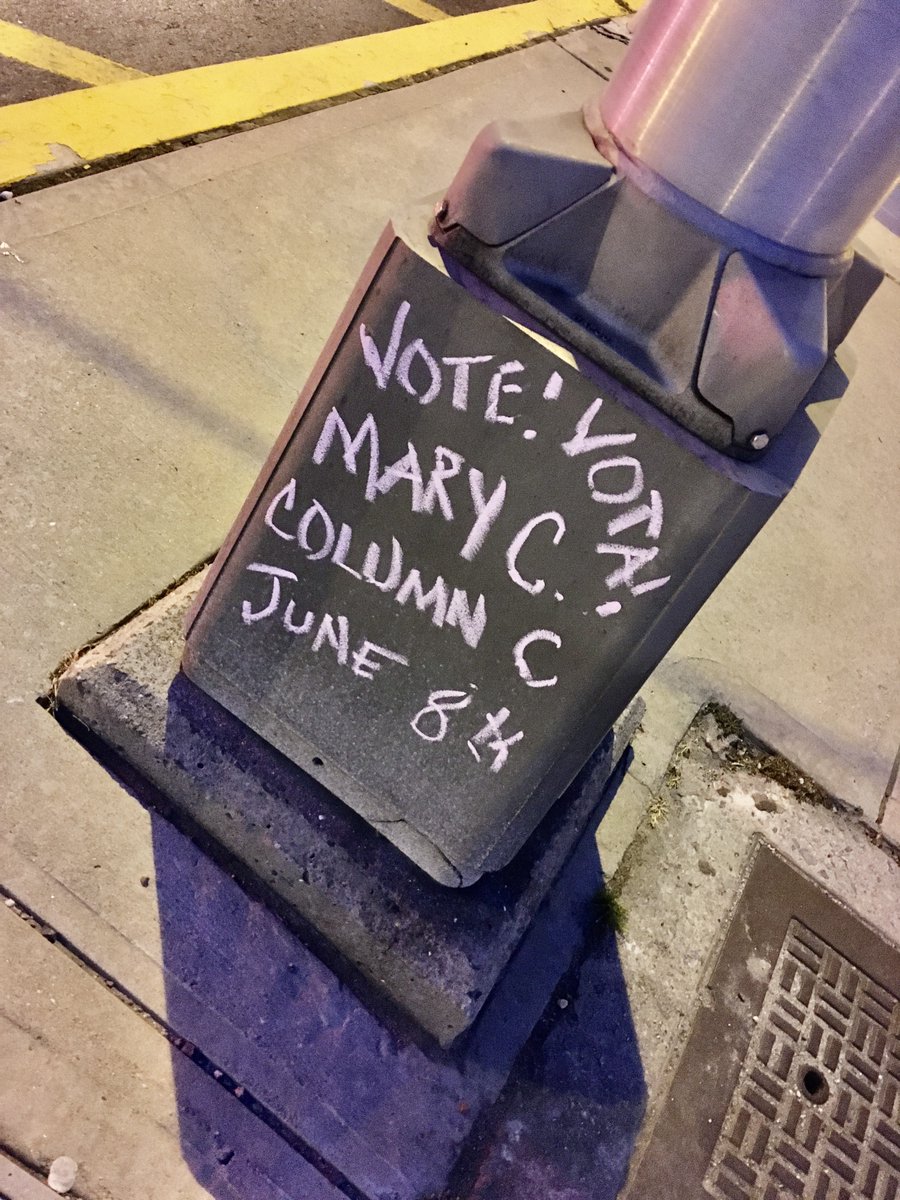 VOTE! VOTA!
MARY C.
COLUMN C
JUNE 8th